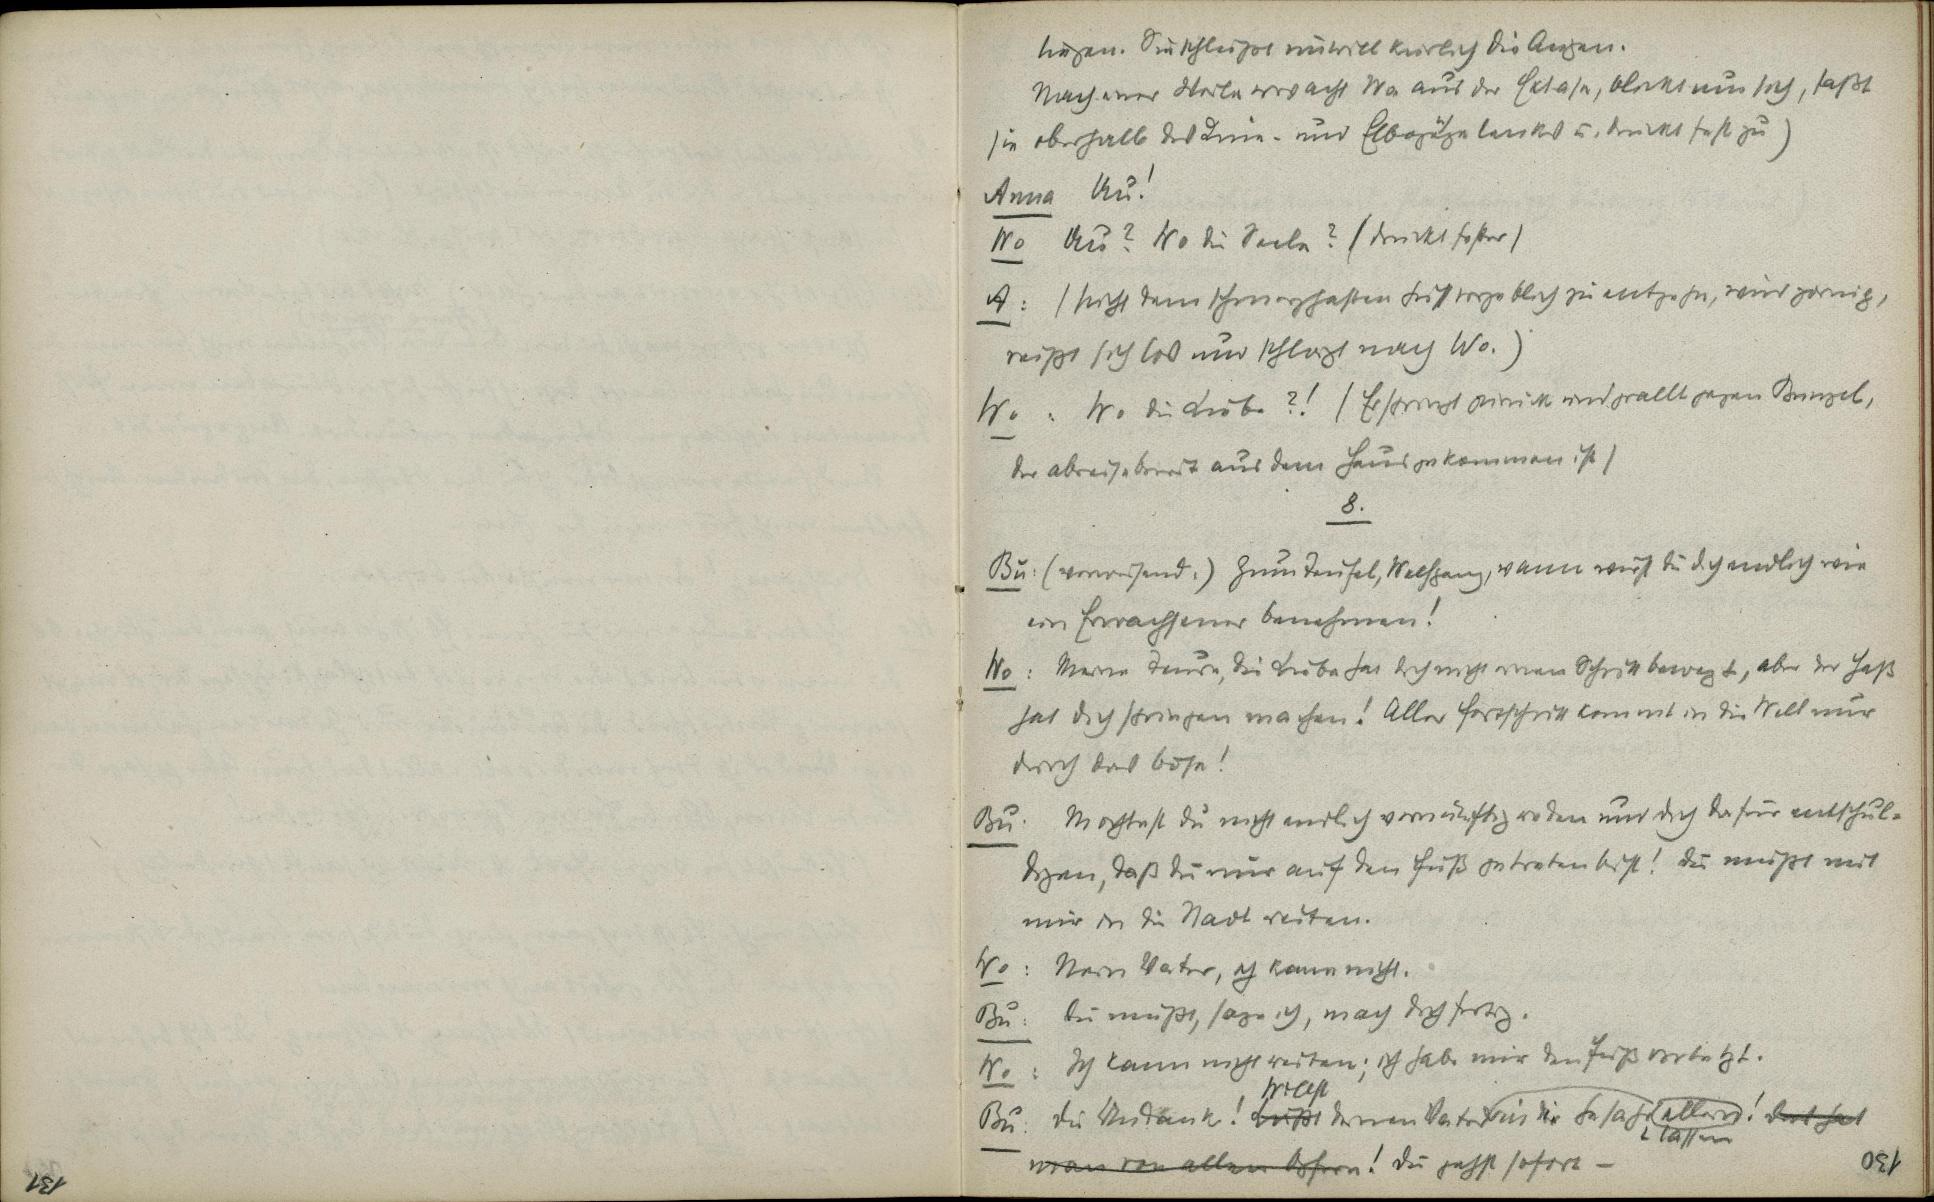 liegen. Sie schließt unwillkürlich die Augen.
Nach einer Weile erwacht Wo aus der Extase, blickt um sich, faßt
sie oberhalb des Knie- und Elbogengelenkes u. drückt fest zu)
Anna Au!
Wo Au? Wo die Seele? (drückt fester)
A: (sucht dem schmerzhaften Griff vergeblich zu entgehn, wird zornig,
reißt sich los und schlägt nach Wo.)
Wo: Wo die Liebe?! (Er springt zurück und prallt gegen Bunzel,
der abreisebereit aus dem Haus gekommen ist)
8.
Bu: (verweisend.) Zum Teufel, Wolfgang, wann wirst du dich endlich wie
ein Erwachsener benehmen!
Wo: Meine Teure, die Liebe hat dich nicht einen Schritt bewegt, aber der Haß
hat dich springen machen! Aller Fortschritt kommt in die Welt nur
durch das böse!
Bu: Möchtest du nicht endlich vernünftig reden und dich dafür entschul-
digen, daß du mir auf den Fuß getreten bist! Du mußt mit
mir in die Stadt reiten.
Wo: Nein Vater, ich kann nicht.
Bu: Du mußt, sage ich, mach dich fertig.
Wo: Ich kann nicht reiten; ich habe mir den Fuß verletzt.
Willst
Bu: Du Undank! deinen Vater in der Gefahr allein!
lassen
man von allen Opfern! Du gehst sofort –
130
131